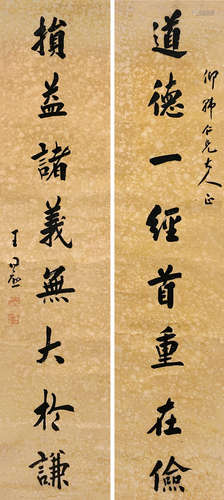 仰仁兄大人正
道德一經首重在儉
損益諸義無大於謙
王同愈